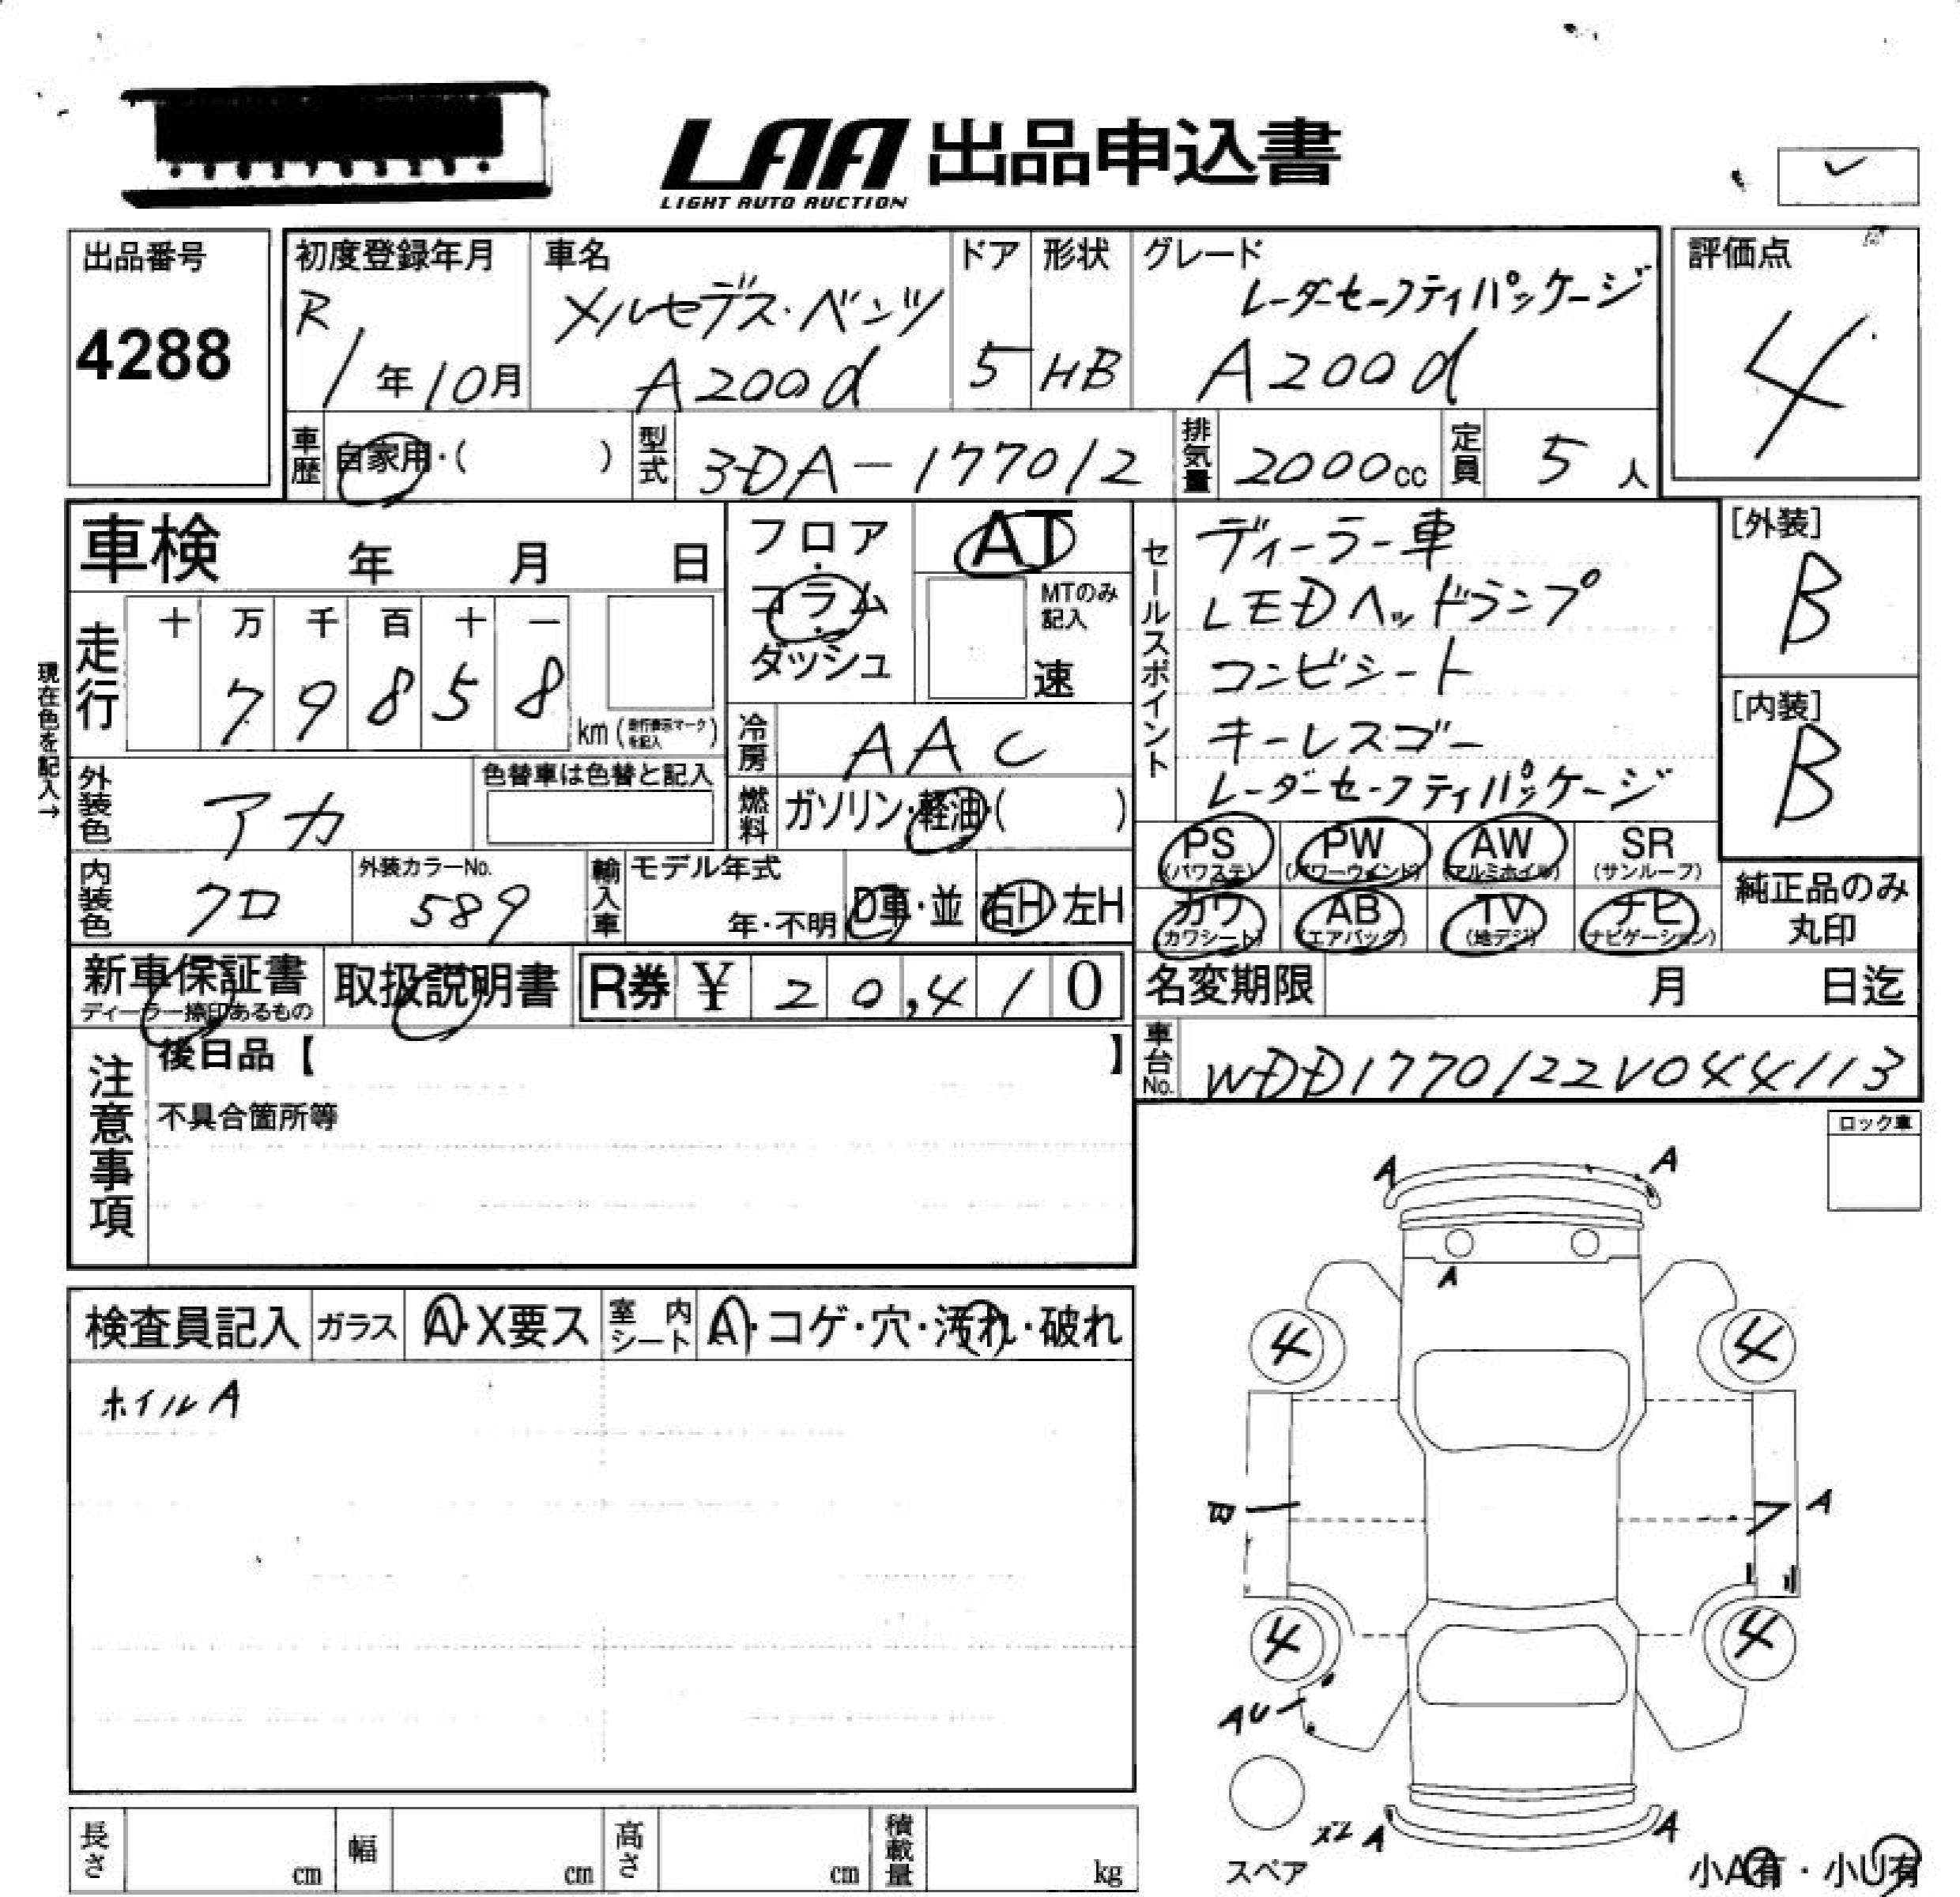 LAA 出品申込書
LIGHT AUTO AUCTION
出品番号
4288
初度登録年月
R
1年10月
車名
メルセデス・ベンツ
A200d
ドア
5
形状
HB
グレード
レーダーセーフティパッケージ
A200d
評価点
4
車歴 自家用・( )
型式 3DA-177012
排気量 2000cc
定員 5人
車検 年 月 日
現在色を記入→
走行
十 万 千 百 十 一
7 9 8 5 8
km (走行表示マークを記入)
フロア・コラム・ダッシュ
AT
MTのみ記入
速
冷房 AAC
外装色 アカ
色替車は色替と記入
燃料 ガソリン・軽油・( )
内装色 クロ
外装カラーNo.
589
輸入車
モデル年式
年・不明
D車・並
右H・左H
セールスポイント
ディーラー車
LEDヘッドランプ
コンビシート
キーレスゴー
レーダーセーフティパッケージ
[外装]
B
[内装]
B
PS (パワステ)
PW (パワーウインド)
AW (アルミホイル)
SR (サンルーフ)
カワ (カワシート)
AB (エアバック)
TV (地デジ)
ナビ (ナビゲーション)
純正品のみ
丸印
新車保証書
ディーラー捺印あるもの
取扱説明書
R券 ¥ 20,410
名変期限 月 日迄
車台No. WDD1770122V044113
注意事項
後日品【 】
不具合箇所等
ロック車
検査員記入
ガラス A・X要ス
室内シート A・コゲ・穴・汚れ・破れ
ホイルA
A
A
A
4
4
B
A
4
4
AU
X2 A
A
スペア
小A有・小U有
長さ cm
幅 cm
高さ cm
積載量 kg